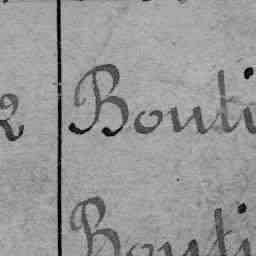 2 Bouti
Bouti